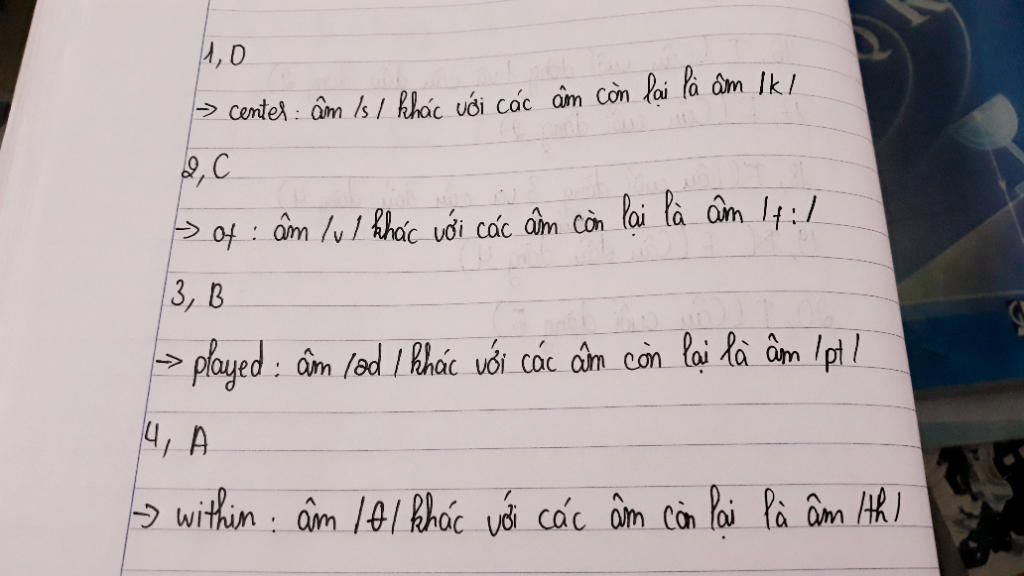 1, D
→ center: âm /s/ khác với các âm còn lại là âm /k/
2, C
→ of: âm /v/ khác với các âm còn lại là âm /f:/
3, B
→ played: âm /əd/ khác với các âm còn lại là âm /pt/
4, A
→ within: âm /θ/ khác với các âm còn lại là âm /th/